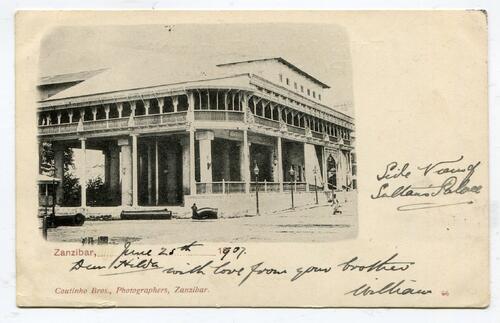 Side View of
Sultan's Palace
Zanzibar, June 25th 1907.
Dear Hilda with love from your brother
William
Coutinho Bros., Photographers, Zanzibar.